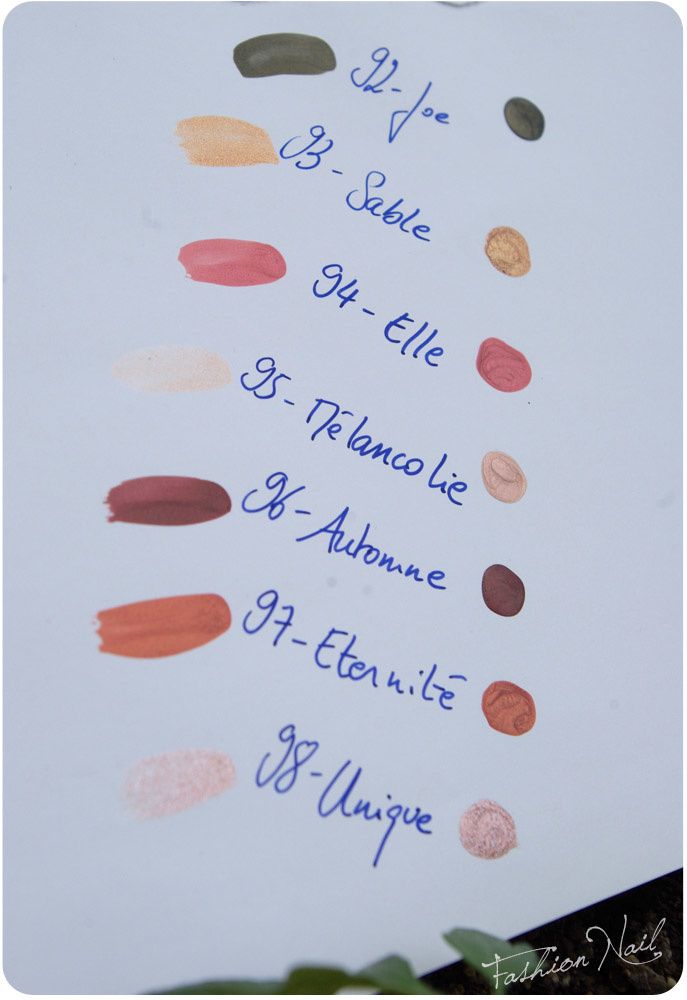 92-Joe
93-Sable
94-Elle
95-Mélancolie
96-Automne
97-Eternité
98-Unique
Fashion Nail